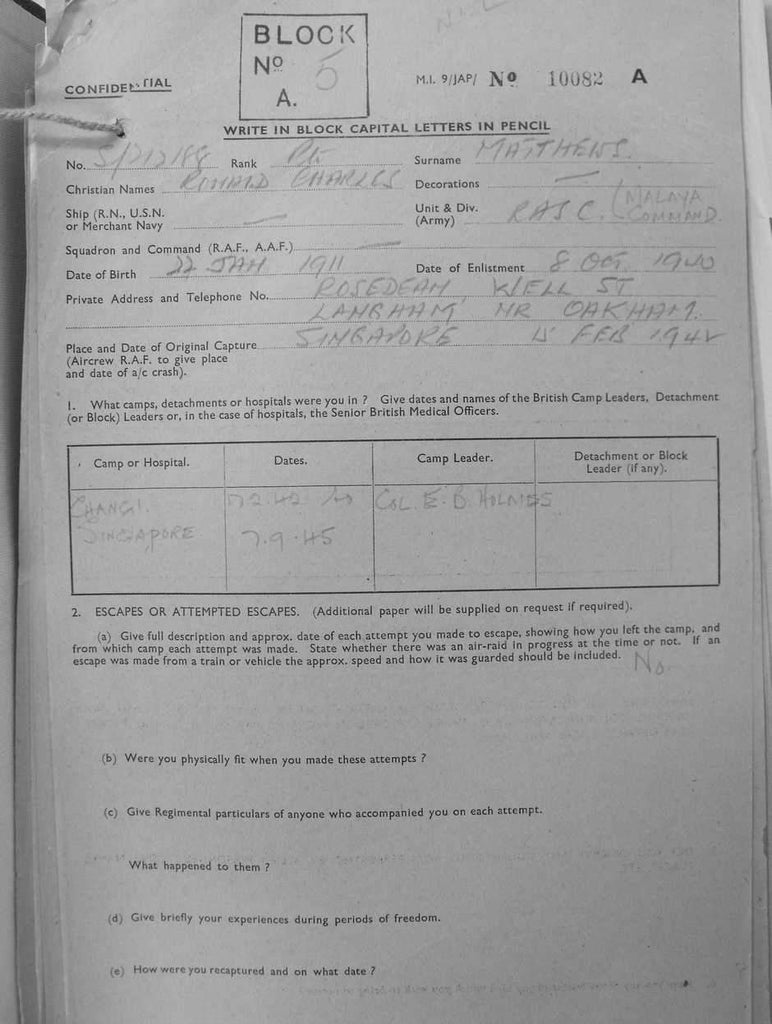 BLOCK
Nº 5
A.
CONFIDENTIAL
M.I. 9/JAP/ Nº 10082 A
WRITE IN BLOCK CAPITAL LETTERS IN PENCIL
No. Rank Pte Surname MATTHEWS.
Christian Names RONALD CHARLES Decorations —
Ship (R.N., U.S.N. — Unit & Div. RASC. (MALAYA
or Merchant Navy (Army) COMMAND.
Squadron and Command (R.A.F., A.A.F.) —
Date of Birth 22 JAN 1911 Date of Enlistment 8 OCT 1940
Private Address and Telephone No. ROSEDEAN, WELL ST
LANGHAM, NR OAKHAM.
Place and Date of Original Capture SINGAPORE 15 FEB 1942
(Aircrew R.A.F. to give place
and date of a/c crash).
1. What camps, detachments or hospitals were you in ? Give dates and names of the British Camp Leaders, Detachment
(or Block) Leaders or, in the case of hospitals, the Senior British Medical Officers.
Camp or Hospital. Dates. Camp Leader. Detachment or Block
Leader (if any).
CHANGI. 17.2.42 to COL E. B. HOLMES
SINGAPORE 7.9.45
2. ESCAPES OR ATTEMPTED ESCAPES. (Additional paper will be supplied on request if required).
(a) Give full description and approx. date of each attempt you made to escape, showing how you left the camp, and
from which camp each attempt was made. State whether there was an air-raid in progress at the time or not. If an
escape was made from a train or vehicle the approx. speed and how it was guarded should be included. No
(b) Were you physically fit when you made these attempts ?
(c) Give Regimental particulars of anyone who accompanied you on each attempt.
What happened to them ?
(d) Give briefly your experiences during periods of freedom.
(e) How were you recaptured and on what date ?